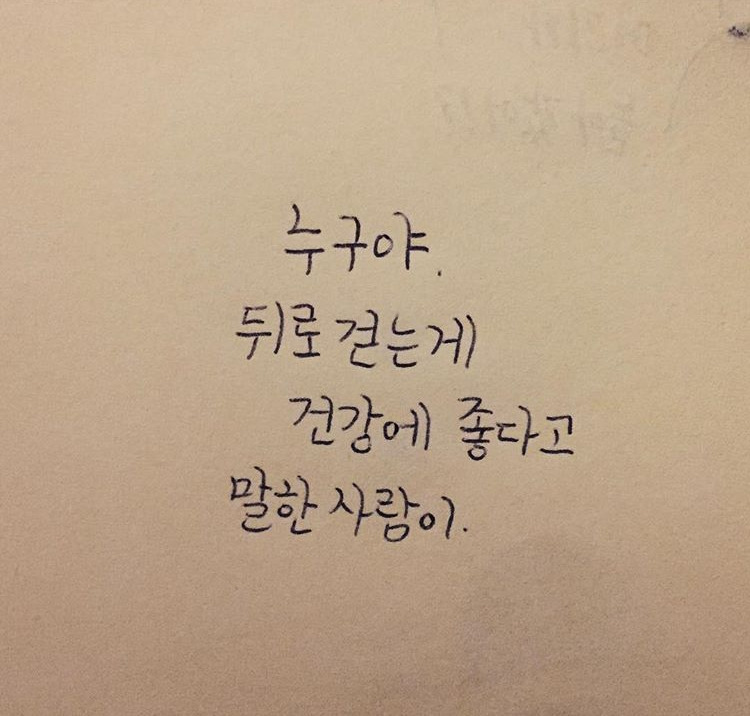 누구야.
뒤로 걷는게
건강에 좋다고
말한 사람이.